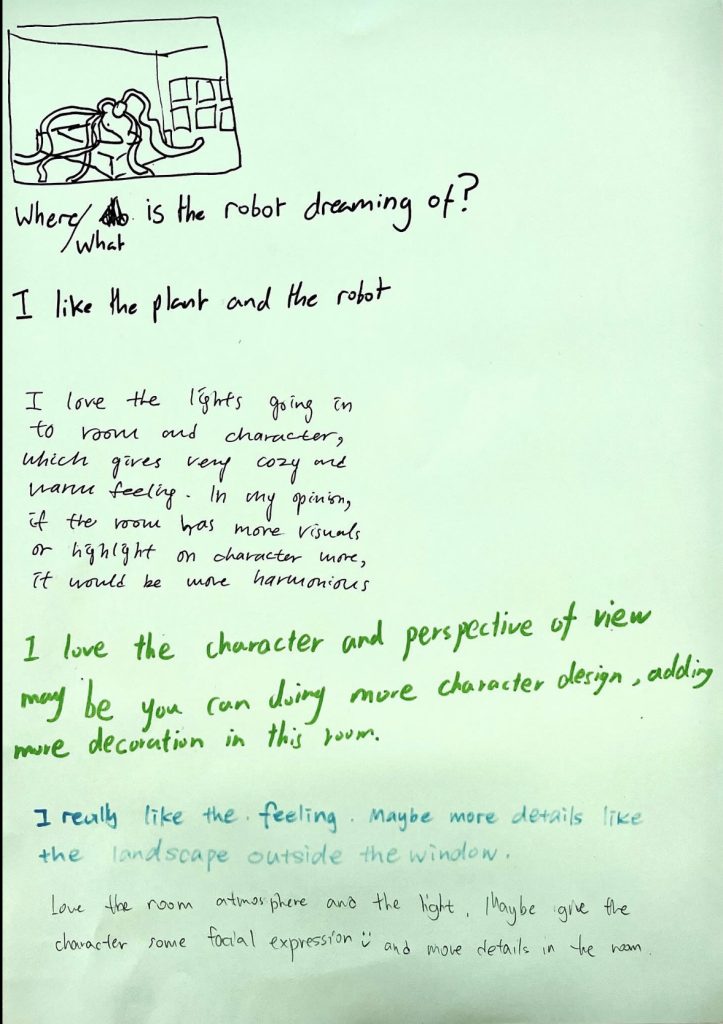 Where/ is the robot dreaming of?
What
I like the plant and the robot
I love the lights going in
to room and character,
which gives very cozy and
warm feeling. In my opinion,
if the room has more visuals
or highlight on character more,
it would be more harmonious
I love the character and perspective of view
may be you can doing more character design, adding
more decoration in this room.
I really like the feeling. Maybe more details like
the landscape outside the window.
Love the room atmosphere and the light. Maybe give the
character some facial expression :) and more details in the room.